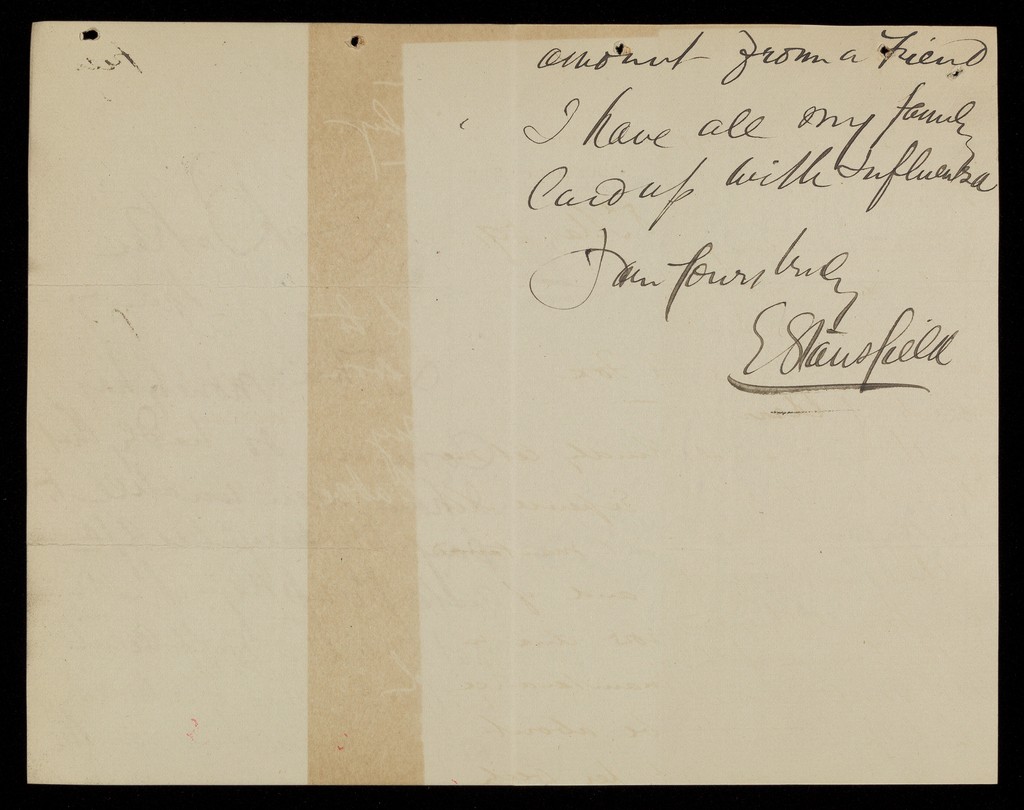 amount from a friend
I have all my family
Laid up with influenza
I am yours truly
E Stansfield